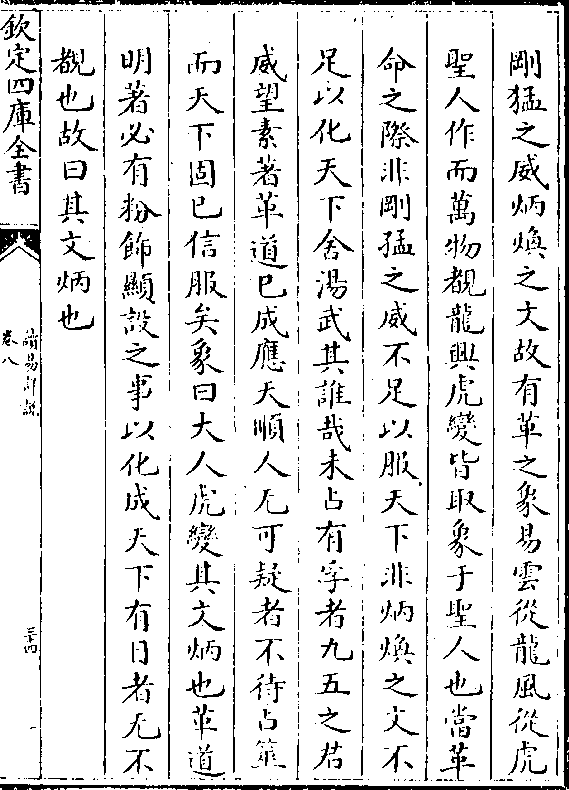 剛猛之威炳煥之文故有革之象易雲從龍風從虎
聖人作而萬物覩龍興虎變皆取象于聖人也當革
命之際非剛猛之威不足以服天下非炳煥之文不
足以化天下舍湯武其誰哉未占有孚者九五之君
威望素著革道已成應天順人无可疑者不待占筮
而天下固已信服矣象曰大人虎變其文炳也革道
明著必有粉飾顯設之事以化成天下有目者无不
覩也故曰其文炳也
欽定四庫全書
讀易詳說
卷八
三十四